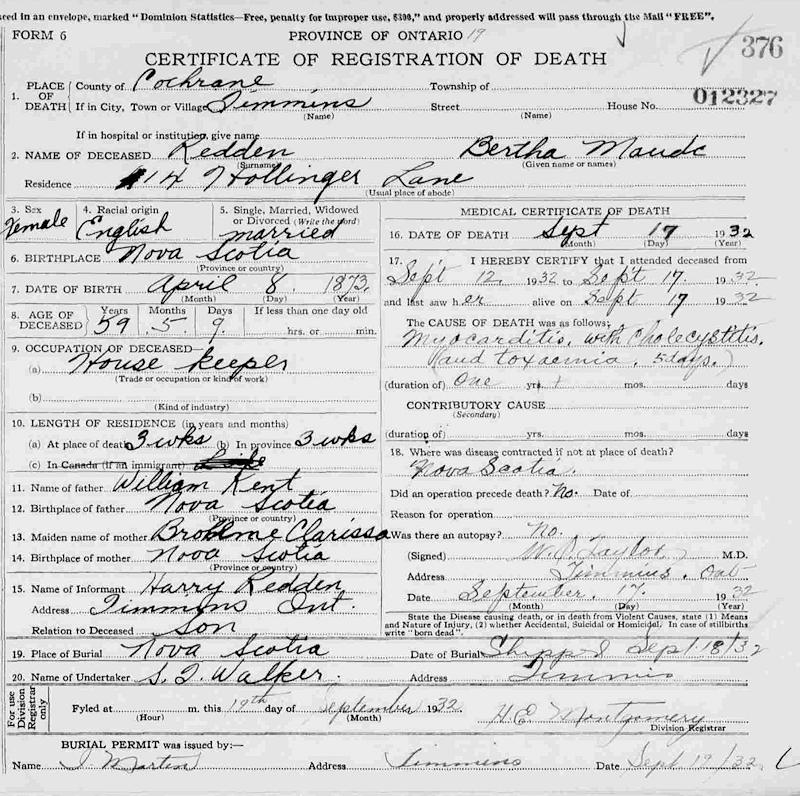 sed in an envelope, marked "Dominion Statistics—Free, penalty for improper use, $300," and properly addressed will pass through the Mail "FREE".
FORM 6 PROVINCE OF ONTARIO 19
CERTIFICATE OF REGISTRATION OF DEATH 376
012327
1. PLACE OF DEATH County of Cochrane Township of
If in City, Town or Village Timmins Street House No.
(Name) (Name)
If in hospital or institution, give name
2. NAME OF DECEASED Redden Bertha Maude
(Surname) (Given name or names)
Residence 14 Hollinger Lane
(Usual place of abode)
3. Sex Female 4. Racial origin English 5. Single, Married, Widowed or Divorced (Write the word) married
6. BIRTHPLACE Nova Scotia
(Province or country)
7. DATE OF BIRTH April 8. 1873.
(Month) (Day) (Year)
8. AGE OF DECEASED Years 59 Months 5 Days 9 If less than one day old hrs. or min.
9. OCCUPATION OF DECEASED—
(a) House keeper
(Trade or occupation or kind of work)
(b)
(Kind of industry)
10. LENGTH OF RESIDENCE (in years and months)
(a) At place of death 3 wks (b) In province 3 wks
(c) In Canada (if an immigrant)
11. Name of father William Kent
12. Birthplace of father Nova Scotia
(Province or country)
13. Maiden name of mother Clarissa
14. Birthplace of mother Nova Scotia
(Province or country)
15. Name of Informant Harry Redden
Address Timmins Ont.
Relation to Deceased Son
MEDICAL CERTIFICATE OF DEATH
16. DATE OF DEATH Sept 17 1932
(Month) (Day) (Year)
17. I HEREBY CERTIFY that I attended deceased from
Sept 12 1932 to Sept 17 1932
and last saw her alive on Sept 17 1932
The CAUSE OF DEATH was as follows:
Myocarditis, with Cholecystitis.
(and toxaemia. 5 days.)
(duration of) One yrs. mos. days
CONTRIBUTORY CAUSE
(Secondary)
(duration of) yrs. mos. days
18. Where was disease contracted if not at place of death?
Nova Scotia.
Did an operation precede death? No. Date of
Reason for operation
Was there an autopsy? No.
(Signed) Taylor M.D.
Address Timmins, Ont
Date September. 17. 1932
(Month) (Day) (Year)
State the Disease causing death, or in death from Violent Causes, state (1) Means and Nature of Injury, (2) whether Accidental, Suicidal or Homicidal. In case of stillbirths write "born dead".
19. Place of Burial Nova Scotia Date of Burial Shipped Sept 18/32
20. Name of Undertaker S. T. Walker. Address Timmins
For use Division Registrar only
Fyled at m. this 19th day of September 1932 H E Montgomery
(Hour) (Month) Division Registrar
BURIAL PERMIT was issued by:—
Name Martin Address Timmins Date Sept 19/32